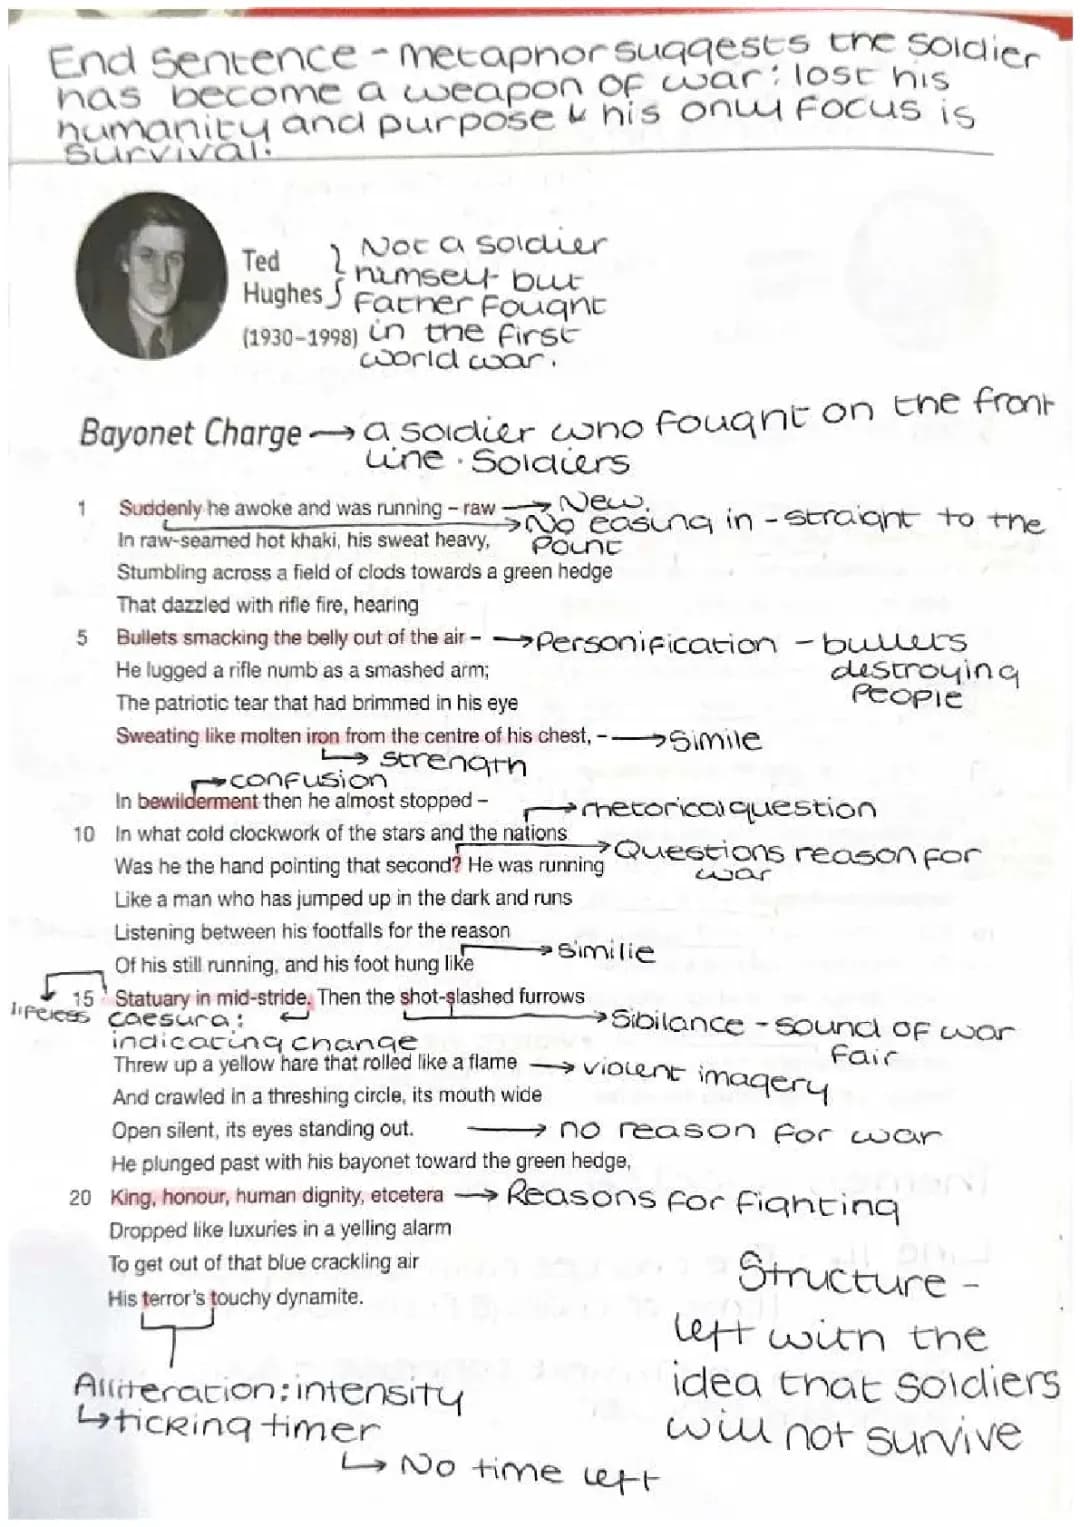 End Sentence - metaphor suggests the soldier
has become a weapon of war: lost his
humanity and purpose & his only focus is
survival.
Ted
Hughes
(1930–1998)
Not a soldier
himself but
Father Fought
in the first
world war.
Bayonet Charge → a soldier who fought on the front
line. Soldiers
1 Suddenly he awoke and was running – raw → New.
→ No easing in - straight to the
point
In raw-seamed hot khaki, his sweat heavy,
Stumbling across a field of clods towards a green hedge
That dazzled with rifle fire, hearing
5 Bullets smacking the belly out of the air – → Personification - bullets
destroying
people
He lugged a rifle numb as a smashed arm;
The patriotic tear that had brimmed in his eye
Sweating like molten iron from the centre of his chest, – → Simile
↳ strength
→ confusion
In bewilderment then he almost stopped –
→ rhetorical question
10 In what cold clockwork of the stars and the nations
→ Questions reason for
war
Was he the hand pointing that second? He was running
Like a man who has jumped up in the dark and runs
Listening between his footfalls for the reason
→ Similie
Of his still running, and his foot hung like
15 Statuary in mid-stride. Then the shot-slashed furrows
lifeless
caesura:
indicating change
→ Sibilance - sound of war
fair
Threw up a yellow hare that rolled like a flame → violent imagery
And crawled in a threshing circle, its mouth wide
Open silent, its eyes standing out. → no reason for war
He plunged past with his bayonet toward the green hedge,
20 King, honour, human dignity, etcetera → Reasons for fighting
Dropped like luxuries in a yelling alarm
To get out of that blue crackling air
His terror's touchy dynamite.
Structure -
left with the
idea that soldiers
will not survive
Alliteration: intensity
↳ ticking timer
↳ No time left